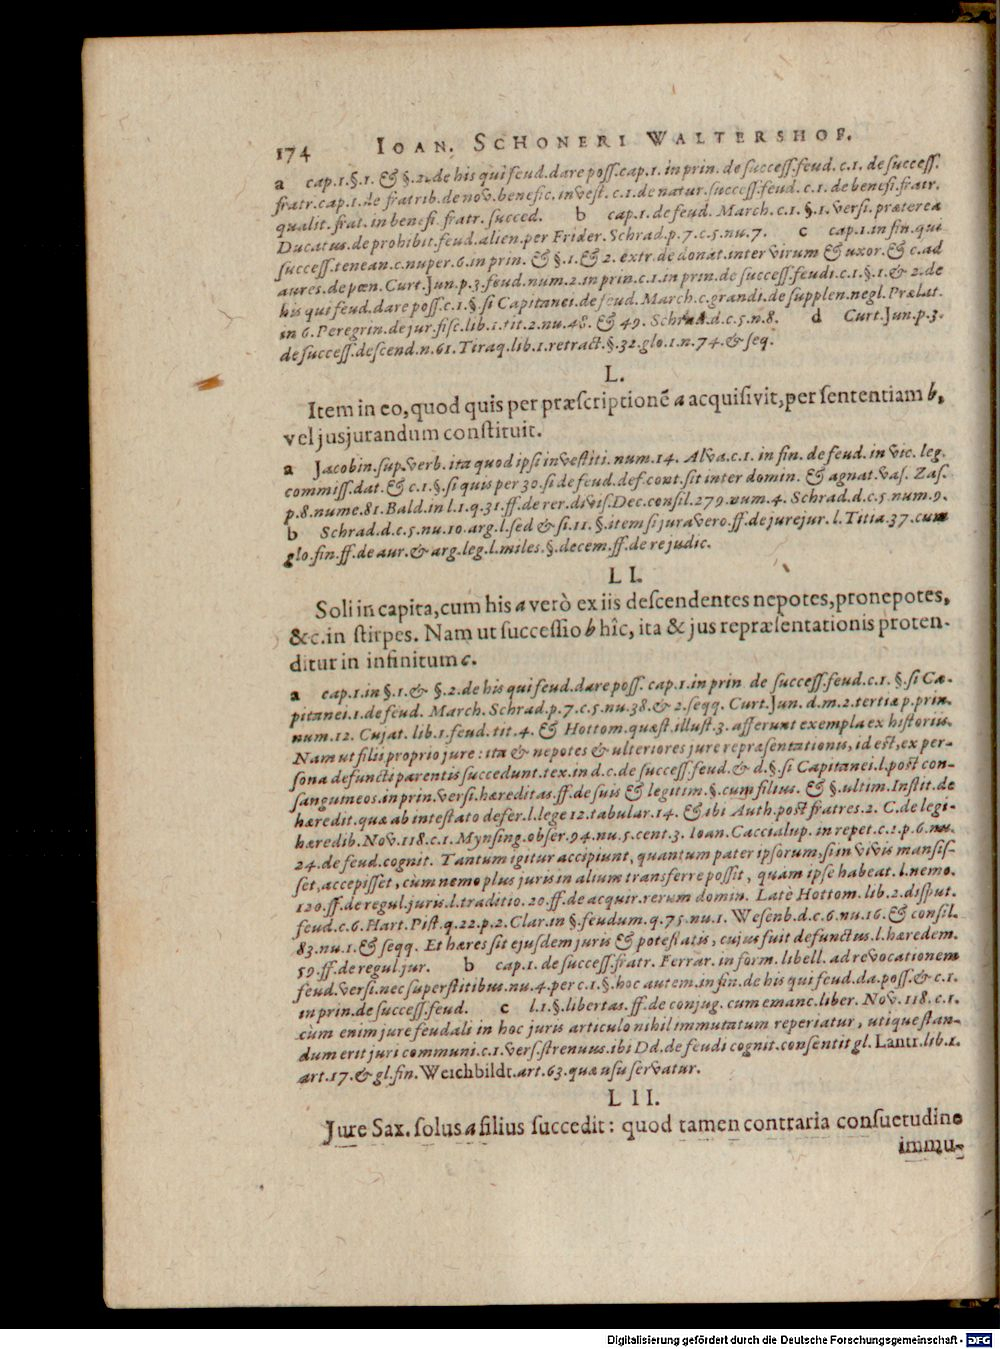 174 IOAN. SCHONERI WALTERSHOF.
a cap.1.§.1. & §.2. de his qui feud. dare poss. cap.1. in prin. de success. feud. c.1. de success.
fratr. cap.1. de fratrib. de nov. benefic. invest. c.1. de natur. success. feud. c.1. de benefi. fratr.
qualit. frat. in benefi. fratr. succed. b cap.1. de feud. March. c.1. §.1. versi. præterea
Ducatus. de prohibit. feud. alien. per Frider. Schrad. p.7. c.5. nu.7. c cap.1. in fin. qui
success. tenean. c. nuper. 6. in prin. & §.1. & 2. extr. de donat. inter virum & uxor. & c. ad
aures. de pœn. Curt. Jun. p.3. feud. num.2. in prin. c.1. in prin. de success. feudi. c.1. §.1. & 2. de
his qui feud. dare poss. c.1. §. si Capitanei. de feud. March. c. grandi. de supplen. negl. Prælat.
in 6. Peregrin. de jur. fisc. lib.1. tit.2. nu.48. & 49. Schrad. d.c.5. n.8. d Curt. Jun. p.3.
de success. descend. n.61. Tiraq. lib.1. retract. §.32. glo.1. n.74. & seq.
L.
Item in eo, quod quis per præscriptionē a acquisivit, per sententiam b,
vel jusjurandum constituit.
a Jacobin. sup. verb. ita quod ipsi investiti. num.14. Alva. c.1. in fin. de feud. in vic. leg.
commiss. dat. & c.1. §. si quis per 30. si de feud. def. cont. sit inter domin. & agnat. vas. Zas.
p.8. nume.81. Bald. in l.1. q.31. ff. de rer. divis. Dec. consil.279. num.4. Schrad. d.c.5. num.9.
b Schrad. d.c.5. nu.10. arg. l. sed & si. 11. §. item si juravero. ff. de jurejur. l. Titia. 37. cum
glo. fin. ff. de aur. & arg. leg. l. miles. §. decem. ff. de re judic.
LI.
Soli in capita, cum his a verò ex iis descendentes nepotes, pronepotes,
&c. in stirpes. Nam ut successio b hîc, ita & jus repræsentationis proten-
ditur in infinitum c.
a cap.1. in §.1. & §.2. de his qui feud. dare poss. cap.1. in prin de success. feud. c.1. §. si Ca-
pitanei. 1. de feud. March. Schrad. p.7. c.5. nu.38. & 2. seqq. Curt. Jun. d.m.2. tertiæ p. prin.
num.12. Cujat. lib.1. feud. tit.4. & Hottom. quæst. illust.3. afferunt exempla ex historiis.
Nam ut filii proprio jure: ita & nepotes & ulteriores jure repræsentationis, id est, ex per-
sona defuncti parentis succedunt. tex. in d.c. de success. feud. & d. §. si Capitanei. l. post con-
sanguineos. in prin. versi. hæreditas. ff. de suis & legitim. §. cum filius. & §. ultim. Instit. de
hæredit. quæ ab intestato defer. l. lege 12. tabular. 14. & ibi Auth. post fratres. 2. C. de legi-
hæredib. Nov. 118. c.1. Mynsing. obser. 94. nu.5. cent.3. Ioan. Caccialup. in repet. c.1. p.6. nu.
24. de feud. cognit. Tantum igitur accipiunt, quantum pater ipsorum, si in vivis mansis-
set, accepisset, cùm nemo plus juris in alium transferre possit, quam ipse habeat. l. nemo.
120. ff. de regul. juris. l. traditio. 20. ff. de acquir. rerum domin. Latè Hottom. lib.2. disput.
feud. c.6. Hart. Pist. q.22. p.2. Clar. in §. feudum. q.75. nu.1. Wesenb. d.c.6. nu.16. & consil.
83. nu.1. & seqq. Et hæres sit ejusdem juris & potestatis, cujus fuit defunctus. l. hæredem.
59. ff. de regul. jur. b cap.1. de success. fratr. Ferrar. in form. libell. ad revocationem
feud. versi. nec superstitibus. nu.4. per c.1. §. hoc autem. in fin. de his qui feud. da. poss. & c.1.
in prin. de success. feud. c l.1. §. libertas. ff. de conjug. cum emanc. liber. Nov. 118. c.1.
cùm enim jure feudali in hoc juris articulo nihil immutatum reperiatur, utique stan-
dum erit juri communi. c.1. vers. strenuus. ibi Dd. de feudi cognit. consentit gl. Lantr. lib.1.
art.17. & gl. fin. Weichbildt. art.63. quæ usu servatur.
LII.
Jure Sax. solus a filius succedit: quod tamen contraria consuetudine
immu-
Digitalisierung gefördert durch die Deutsche Forschungsgemeinschaft - DFG